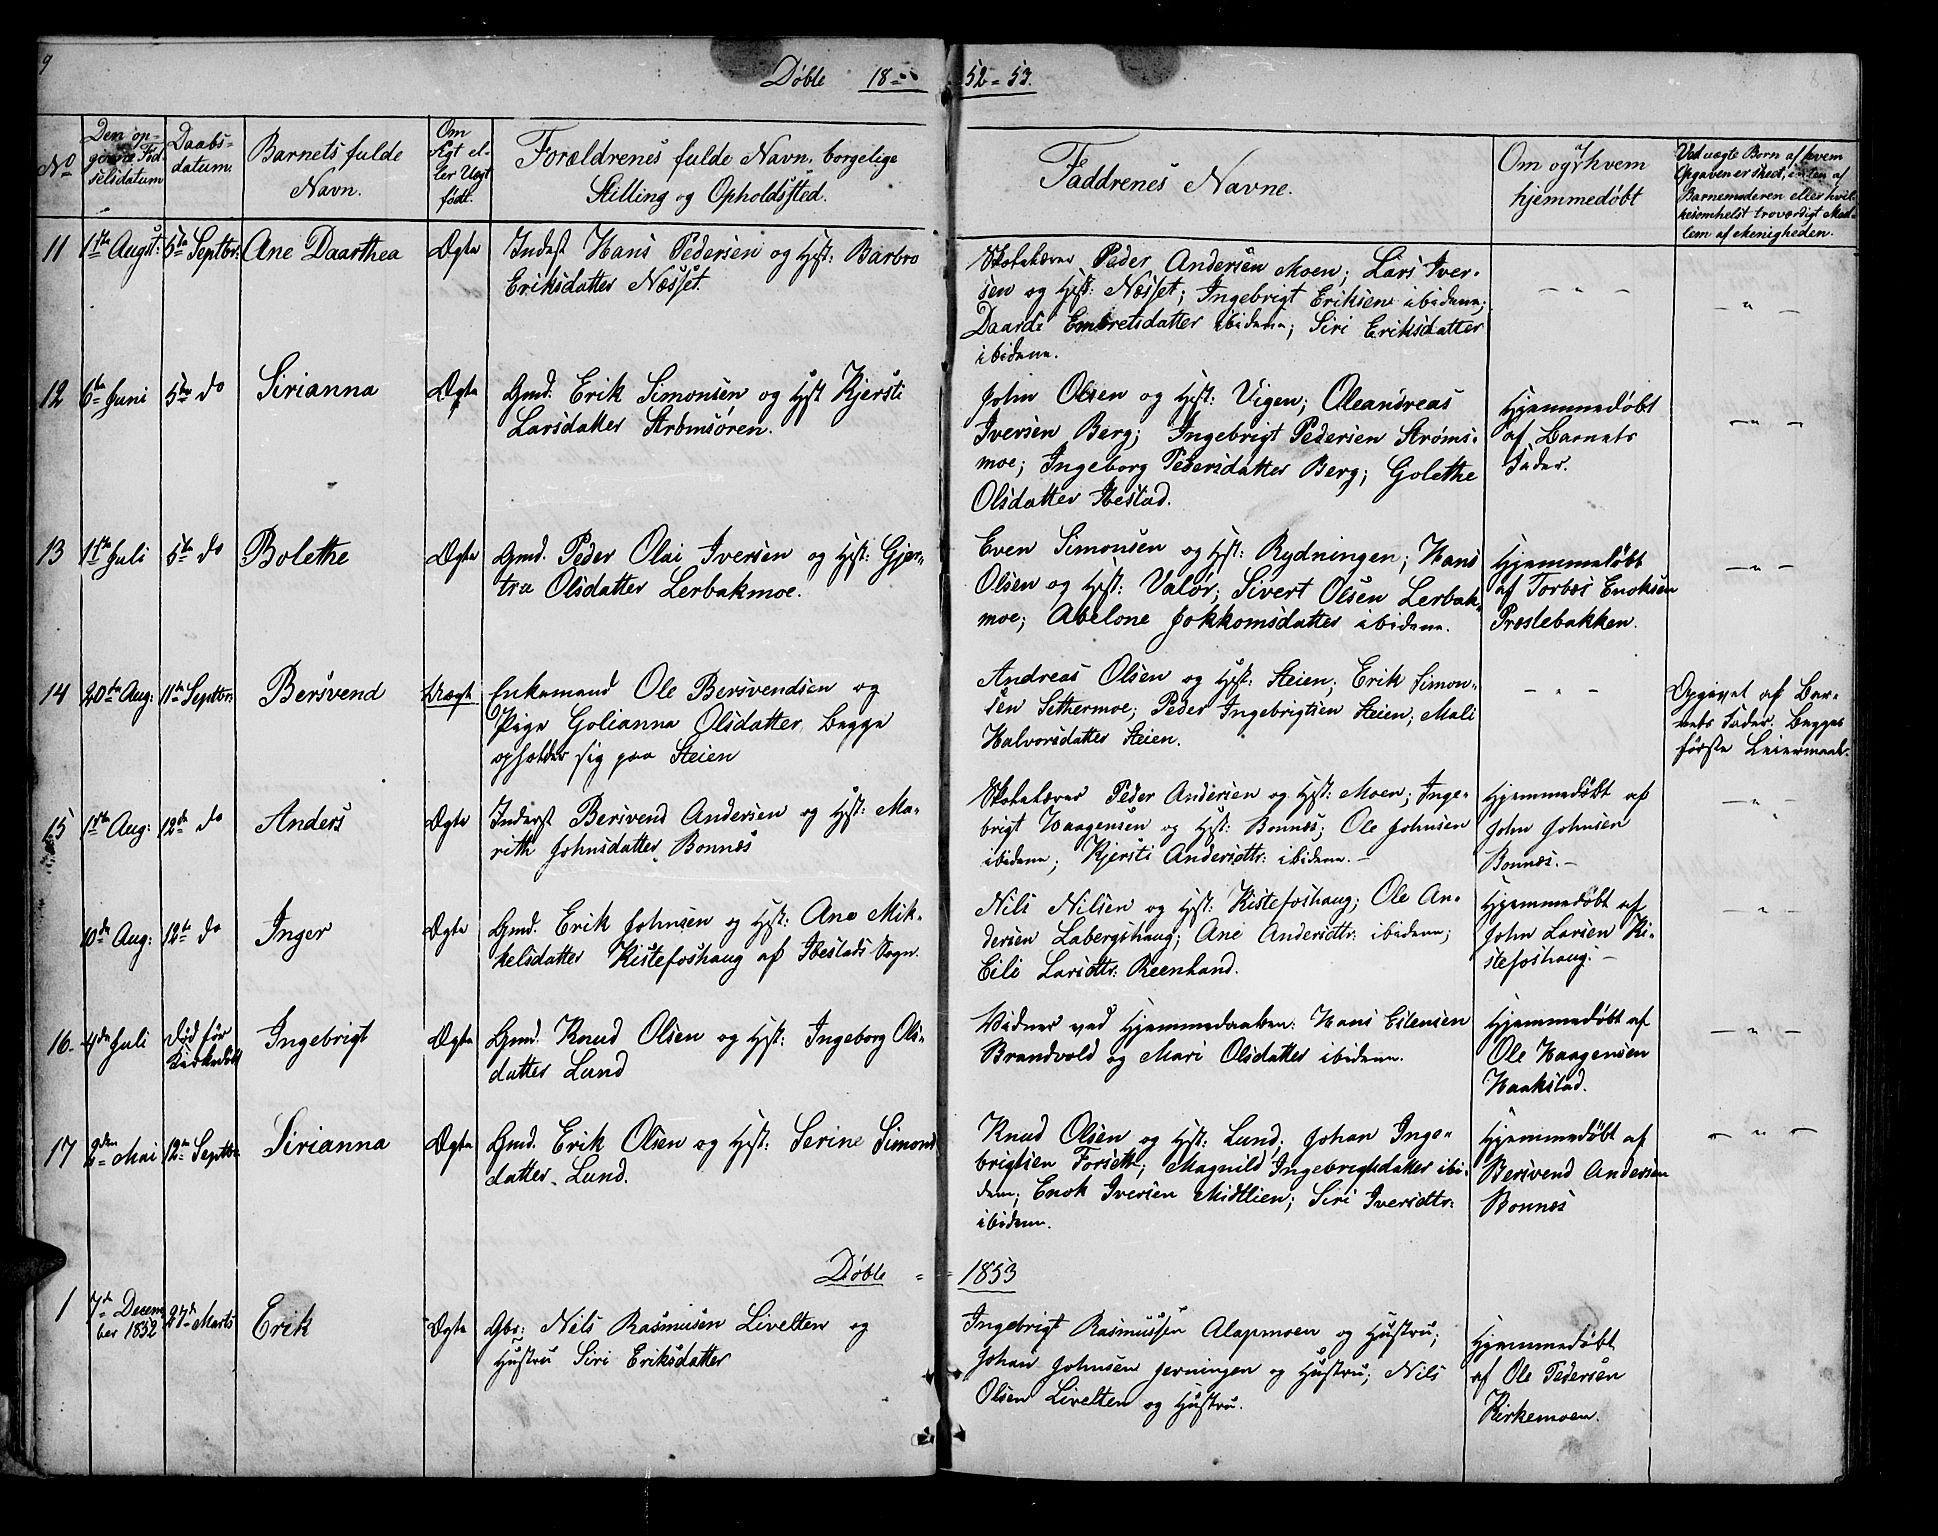 9
Døbte 18 52-53.
No
Den op-
givne Fød-
selsdatum
Daabs-
datum.
Barnets fulde
Navn.
Om
Ægt el-
ler Uægt
født.
Forældrenes fulde Navn, borgelige
Stilling og Opholdssted.
Faddrenes Navne.
Om og af hvem
hjemmedøbt
Ved uægte Børn af hvem
Opgaven er skeet, enten af
Barnemoderen eller hvil-
kesomhelst troværdigt Med-
lem af Menigheden.
11 1ste Augst: 5te Septbr: Ane Daarthea Ægte
Inderst Hans Pedersen og Hst: Barbro
Eriksdatter Næsset.
Skolelærer Peder Andersen Moen; Lars Iver-
sen og Hst: Næsset; Ingebrigt Eriksen ibidem;
Daarde Embretsdatter ibidem; Siri Eriksdatter
ibidem.
— " —
— " —
12 6te Juni 5te do Sirianna Ægte
Gmd. Erik Simonsen og Hst Kjersti
Larsdatter Strømsøren.
John Olsen og Hst: Vigen; Oleandreas
Iversen Berg; Ingebrigt Pedersen Strøms-
moe; Ingeborg Pedersdatter Berg; Golethe
Olsdatter Ibestad.
Hjemmedøbt
af Barnets
Fader.
— " —
13 11te Juli 5te do Bolethe Ægte
Gmd. Peder Olai Iversen og Hst: Gjer-
tru Olsdatter Lerbakmoe.
Even Simonsen og Hst: Rydningen; Hans
Olsen og Hst: Valør; Sivert Olsen Lerbak-
moe; Abelone Jokkomsdatter ibidem.
Hjemmedøbt
af Torbes Enoksen
Præstebakken.
— " —
14 20de Aug: 11te Septbr: Bersvend Uægte
Enkemand Ole Bersvendsen og
Pige Golianna Olsdatter, begge
opholder sig paa Steien
Andreas Olsen og Hst: Steien; Erik Simon-
sen Sethermoe; Peder Ingebrigtsen Steien; Mali
Halvorsdatter Steien.
— " —
Opgivet af Bar-
nets Fader. Begges
første Leiermaal.
15 1ste Aug: 12te do Anders Ægte
Inderst Bersvend Andersen og Hst: Ma-
rith Johnsdatter Bonnes
Skolelærer Peder Andersen og Hst: Moen; Inge-
brigt Haagensen og Hst: Bonnes; Ole Johnsen
ibidem; Kjersti Andersdtr: ibidem.—
Hjemmedøbt af
John Johnsen
Bonnes.—
— " —
10de Aug: 12te do Inger Ægte
Gmd. Erik Johnsen og Hst: Ane Mik-
kelsdatter Kistefoshaug af Ibestads Sogn.
Nils Nilsen og Hst: Kistefoshaug; Ole An-
dersen Labergshaug; Ane Andersdtr: ibidem;
Eili Larsdtr: Reenland.
Hjemmedøbt af
John Larsen Ki-
stefoshaug.—
— " —
16. 4de Juli Død før
Kirkedaab Ingebrigt Ægte
Gmd. Knud Olsen og Hst: Ingeborg Ols-
datter Lund
Vidner ved Hjemmedaaben: Hans Eilensen
Brandvold og Mari Olsdatter ibidem.
Hjemmedøbt af
Ole Haagensen
Haakstad.
— " —
17 2den Mai 12te Septbr: Sirianna Ægte
Gmd. Erik Olsen og Hst: Serine Simons
datter Lund.
Knud Olsen og Hst: Lund; Johan Inge-
brigtsen Forseth; Magnild Ingebrigtsdatter ibi-
dem; Enok Iversen Midtlien; Siri Iversdtr:
ibidem.
Hjemmedøbt af
Bersvend Andersen
Bonnes
— " —
Døbte - - 1853
1 7de Decem
ber 1852 27de Marts Erik Ægte
Gbr: Nils Rasmusen Livelten og
Hustru Siri Eriksdatter
Ingebrigt Rasmussen Alapmoen og Hustru;
Johan Johnsen Jerningen og Hustru; Nils
Olsen Livelten og Hustru.
Hjemmedøbt
af Ole Pedersen
Kirkemoen.